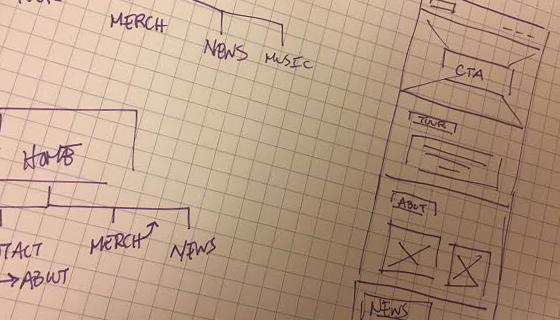 MERCH
NEWS
MUSIC
HOME
TACT
→ABOUT
MERCH
NEWS
CTA
TOUR
ABOUT
NEWS